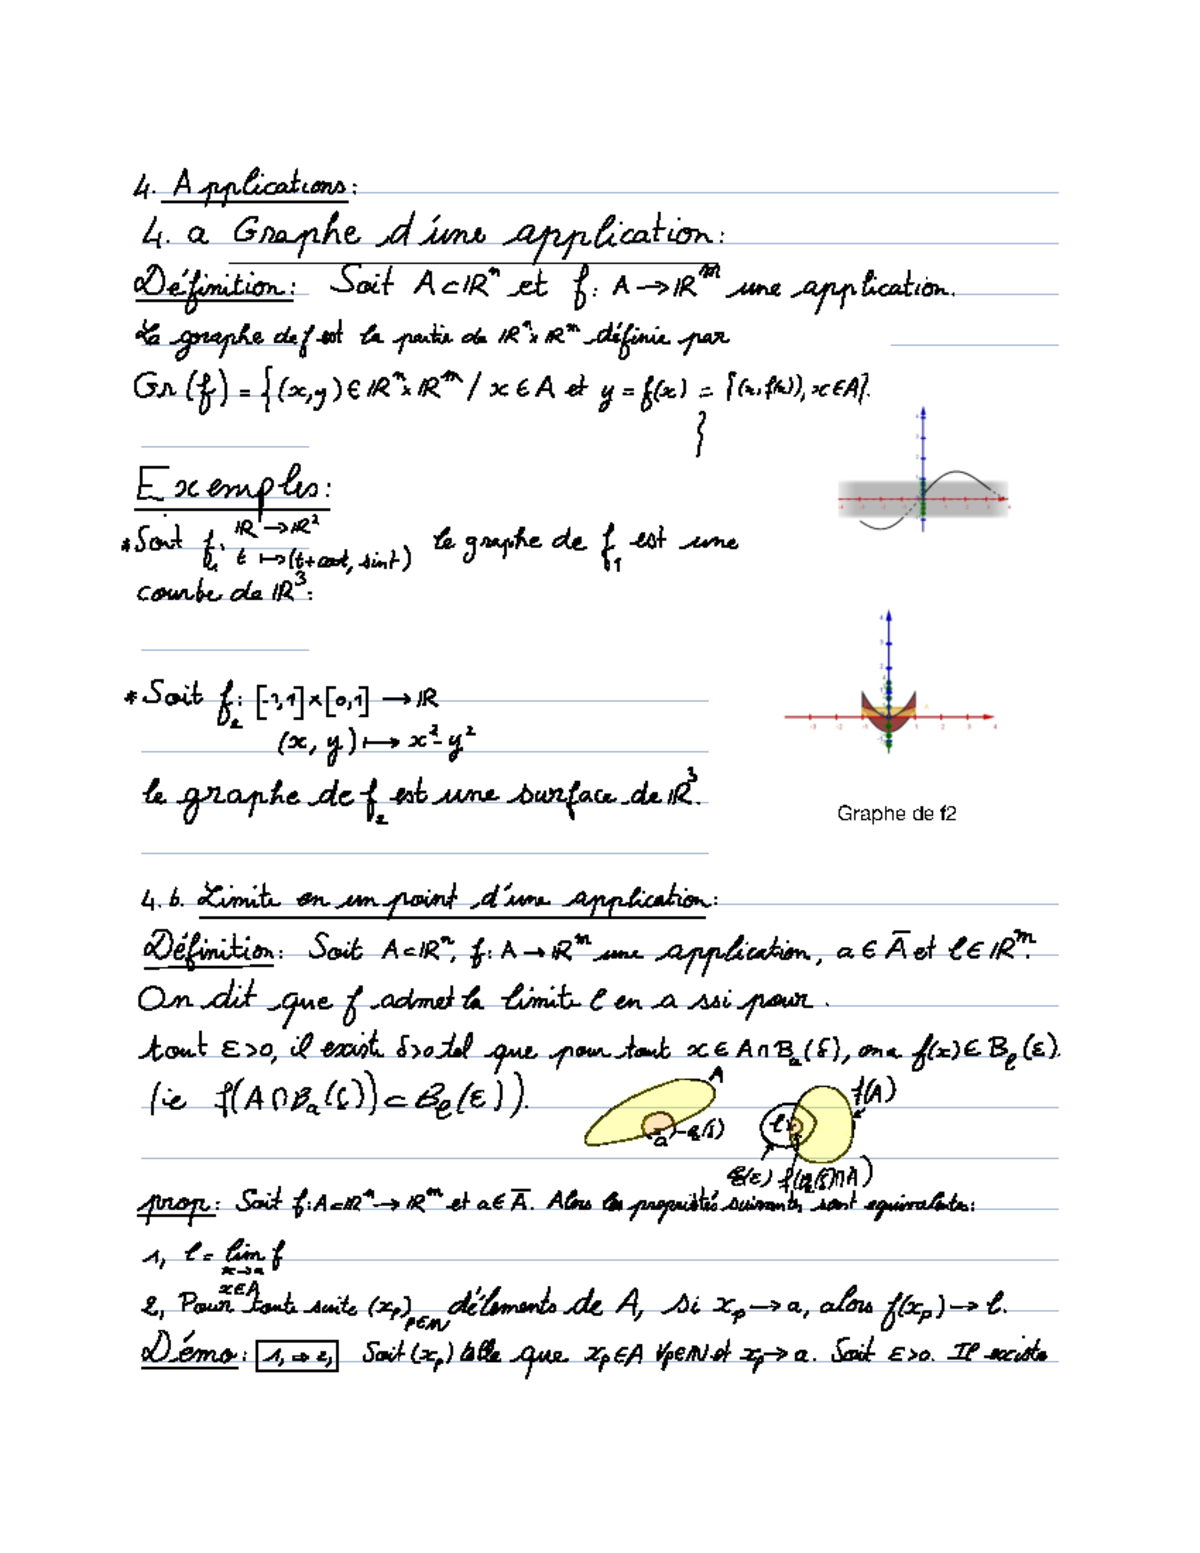 4. Applications:
4. a Graphe d'une application:
Définition: Soit A⊂ℝⁿ et f: A→ℝᵐ une application.
Le graphe de f est la partie de ℝⁿ×ℝᵐ définie par
Gr(f) = {(x,y)∈ℝⁿ×ℝᵐ / x∈A et y = f(x) = {(x,f(x)), x∈A}.
}
Exemples:
*Soit f₁: ℝ→ℝ² le graphe de f₁ est une
t ↦(t+cost, sint)
courbe de ℝ³:
*Soit f₂: [-1,1]×[0,1] →ℝ
(x, y)↦ x²-y²
le graphe de f₂ est une surface de ℝ³.
Graphe de f2
4. b. Limite en un point d'une application:
Définition: Soit A⊂ℝⁿ, f: A→ℝᵐ une application, a∈Ā et l∈ℝᵐ.
On dit que f admet la limite l en a ssi pour
tout ε>0, il existe δ>0 tel que pour tout x∈A∩Bₐ(δ), on a f(x)∈Bₗ(ε).
(ie f(A∩Bₐ(δ))⊂Bₗ(ε)).
A
f(A)
a
l
f(Bₐ(δ)∩A)
prop: Soit f:A⊂ℝⁿ→ℝᵐ et a∈Ā. Alors les propriétés suivantes sont equivalentes:
1, l = lim f
x→a
x∈A
2, Pour toute suite (xₚ)ₚ∈ℕ d'élements de A, si xₚ→a, alors f(xₚ)→l.
Démo: 1,⇒2, Soit (xₚ) telle que xₚ∈A ∀p∈ℕ et xₚ→a. Soit ε>0. Il existe